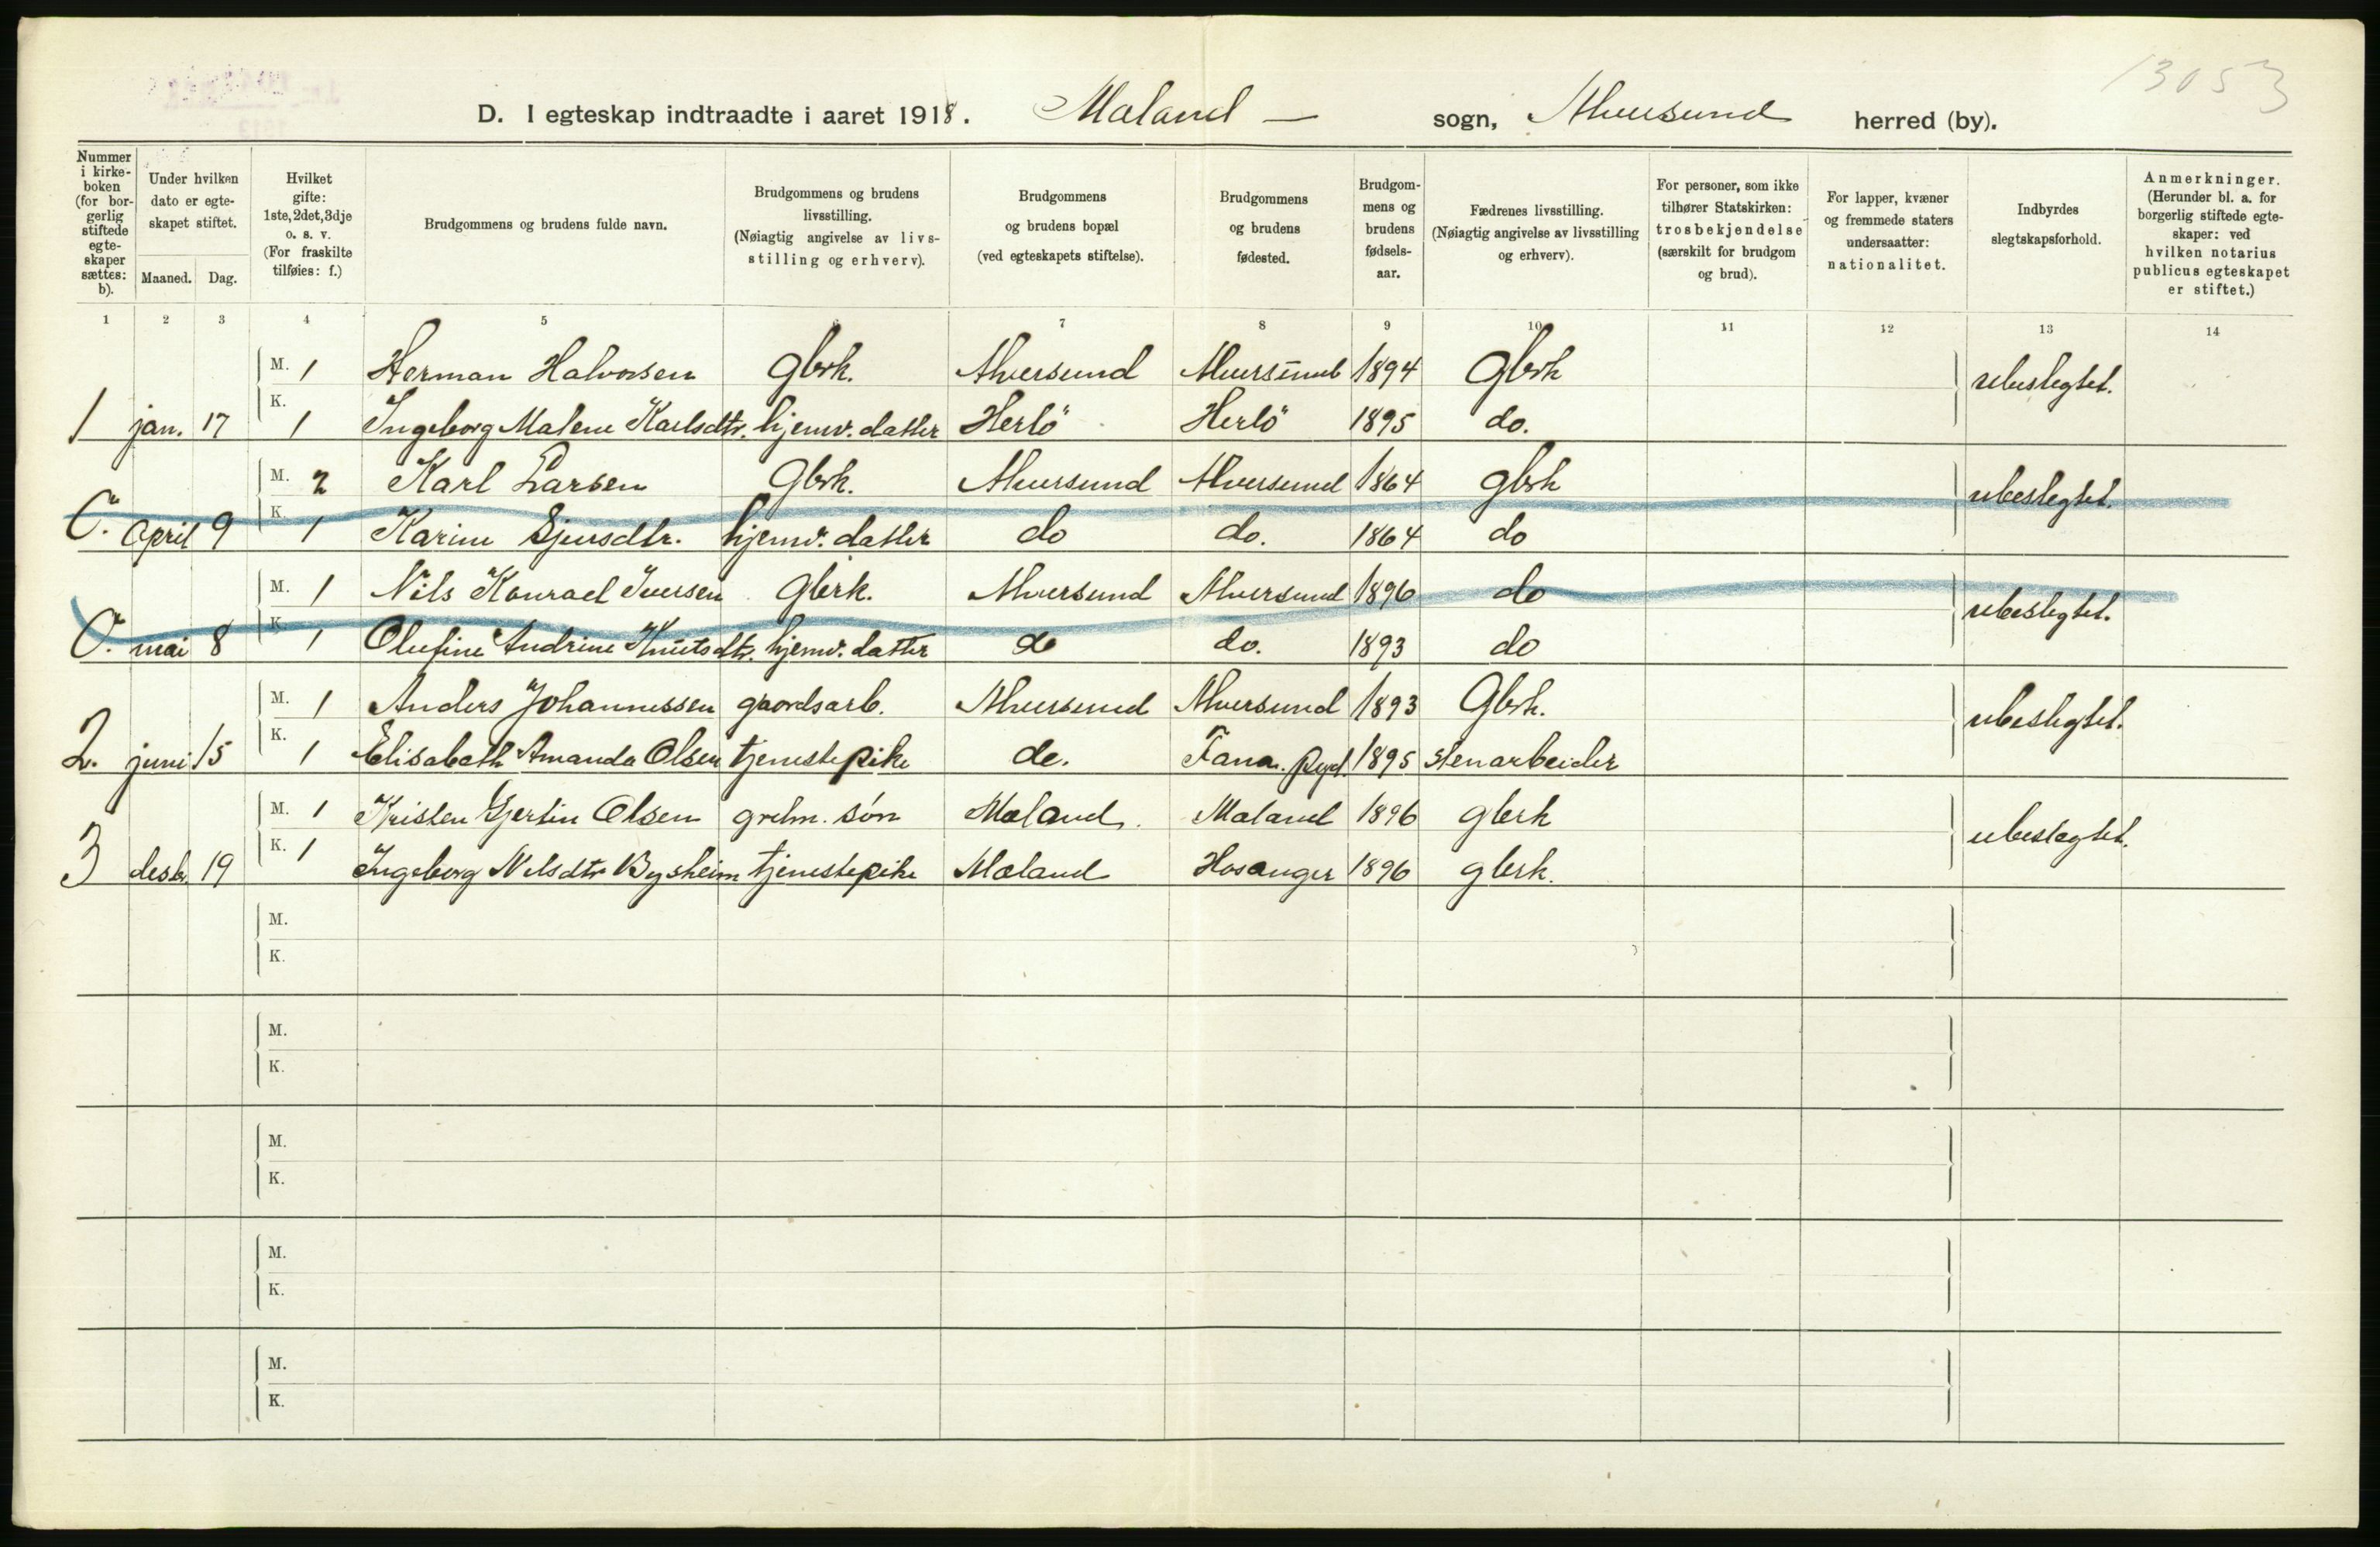 13053
D. I egteskap indtraadte i aaret 1918. Mæland — sogn, Alversund herred (by).
Nummer i kirkeboken (for borgerlig stiftede egteskaper sættes: b).
Under hvilken dato er egteskapet stiftet.
Maaned. Dag.
Hvilket gifte: 1ste, 2det, 3dje o. s. v. (For fraskilte tilføies: f.)
Brudgommens og brudens fulde navn.
Brudgommens og brudens livsstilling. (Nøiagtig angivelse av livsstilling og erhverv).
Brudgommens og brudens bopæl (ved egteskapets stiftelse).
Brudgommens og brudens fødested.
Brudgommens og brudens fødselsaar.
Fædrenes livsstilling. (Nøiagtig angivelse av livsstilling og erhverv).
For personer, som ikke tilhører Statskirken: trosbekjendelse (særskilt for brudgom og brud).
For lapper, kvæner og fremmede staters undersaatter: nationalitet.
Indbyrdes slegtskapsforhold.
Anmerkninger. (Herunder bl. a. for borgerlig stiftede egteskaper: ved hvilken notarius publicus egteskapet er stiftet.)
1 2 3 4 5 6 7 8 9 10 11 12 13 14
M. 1 Herman Halvorsen gbrk. Alversund Alversund 1894 Gbrk ubeslegtet.
1 jan. 17 K. 1 Ingeborg Malene Karlsdtr. hjemv. datter Herlö Herlö 1895 do.
M. 2 Karl Larsen Gbrk. Alversund Alversund 1864 gbrk ubeslegtet.
april 9 K. 1 Karine Sjursdtr. hjemv. datter do do. 1864 do
M. 1 Nils Konrad Iversen Gbrk. Alversund Alversund 1896 do ubeslegtet.
mai 8 K. 1 Olufine Andrine Knutsdtr. hjemv. datter do do. 1893 do
M. 1 Anders Johannessen gaardsarb. Alversund Alversund 1893 Gbrk. ubeslegtet.
2. juni 15 K. 1 Elisabeth Amanda Olsen tjenestepike do. Fana. 1895 stenarbeider
M. 1 Kristen Gjertin Olsen grdm. søn Mæland Mæland 1896 gbrk ubeslegtet.
3 desbr. 19 K. 1 Ingeborg Nilsdtr Bysheim tjenestepike Mæland Hosanger 1896 gbrk.
M.
K.
M.
K.
M.
K.
M.
K.
M.
K.